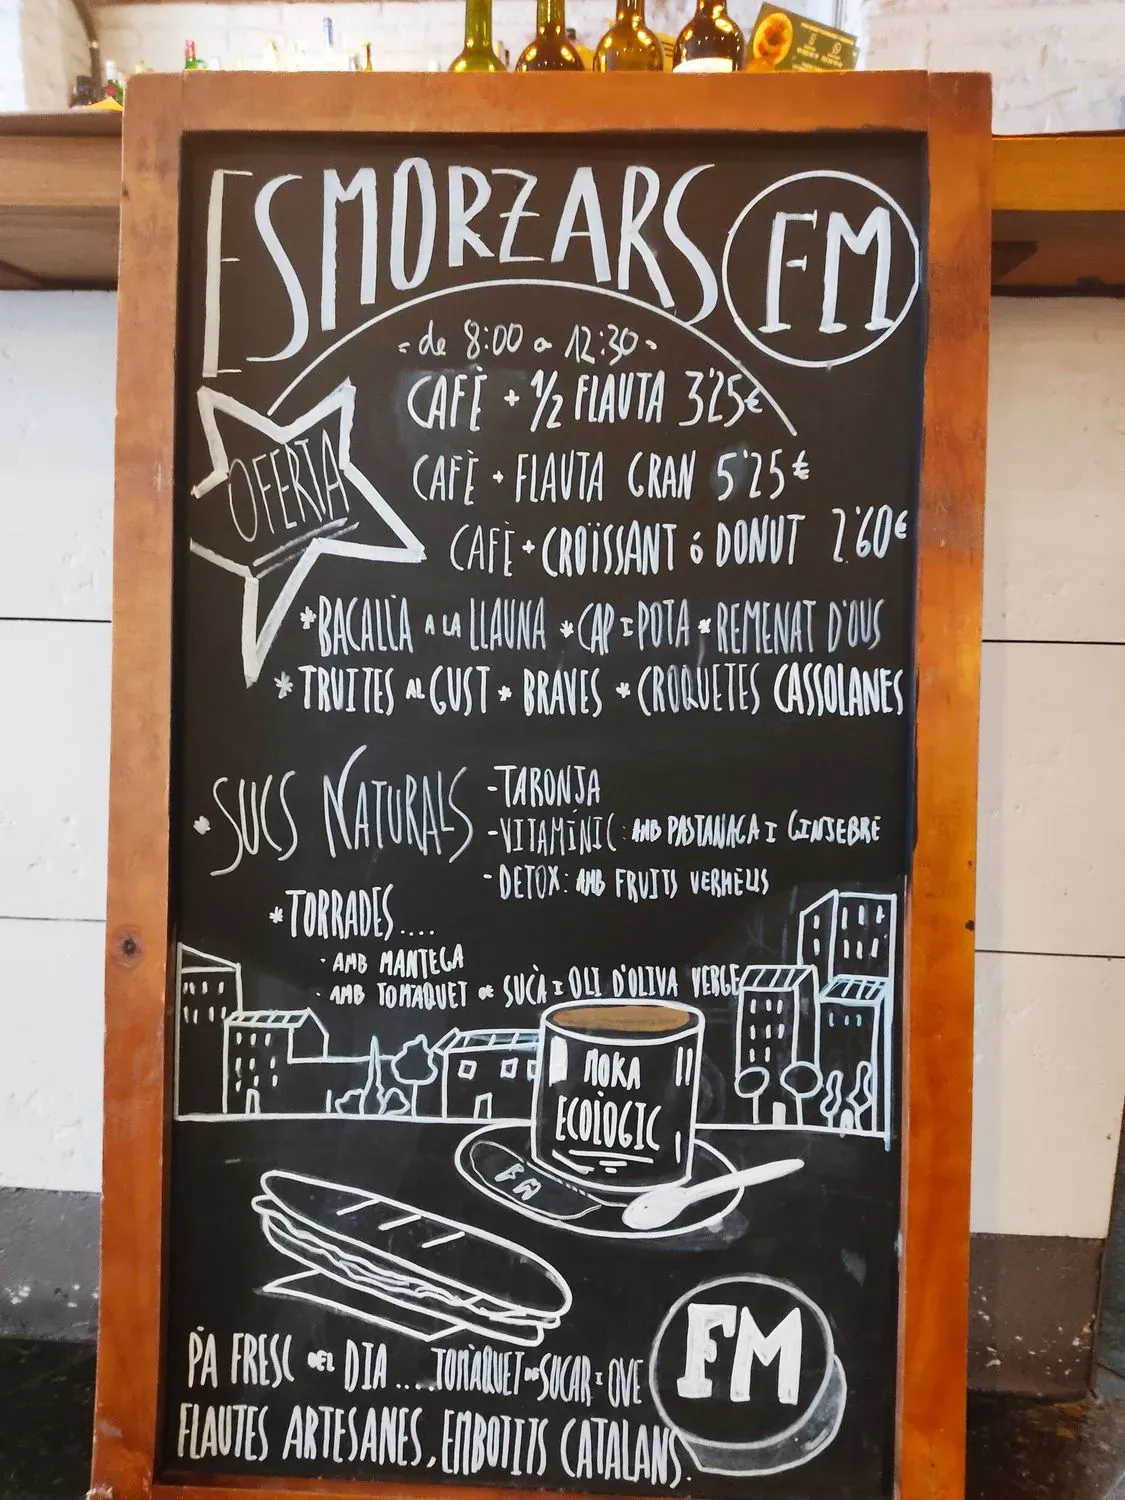 ESMORZARS
FM
- de 8:00 a 12:30 -
CAFÈ + 1/2 FLAUTA 3'25€
CAFÈ + FLAUTA GRAN 5'25€
CAFÈ + CROÏSSANT ó DONUT 2'60€
OFERTA
* BACALLÀ A LA LLAUNA * CAP I POTA * REMENAT D'OUS
* TRUITES AL GUST * BRAVES * CROQUETES CASSOLANES
* SUCS NATURALS
- TARONJA
- VITAMÍNIC: AMB PASTANAGA I GINJEBRE
- DETOX: AMB FRUITS VERMELLS
* TORRADES....
· AMB MANTEGA
· AMB TOMAQUET DE SUCÀ I OLI D'OLIVA VERGE
MOKA
ECOLÒGIC
FM
FM
PA FRESC DEL DIA .... TOMÀQUET DE SUCAR I OVE
FLAUTES ARTESANES, EMBOTITS CATALANS.